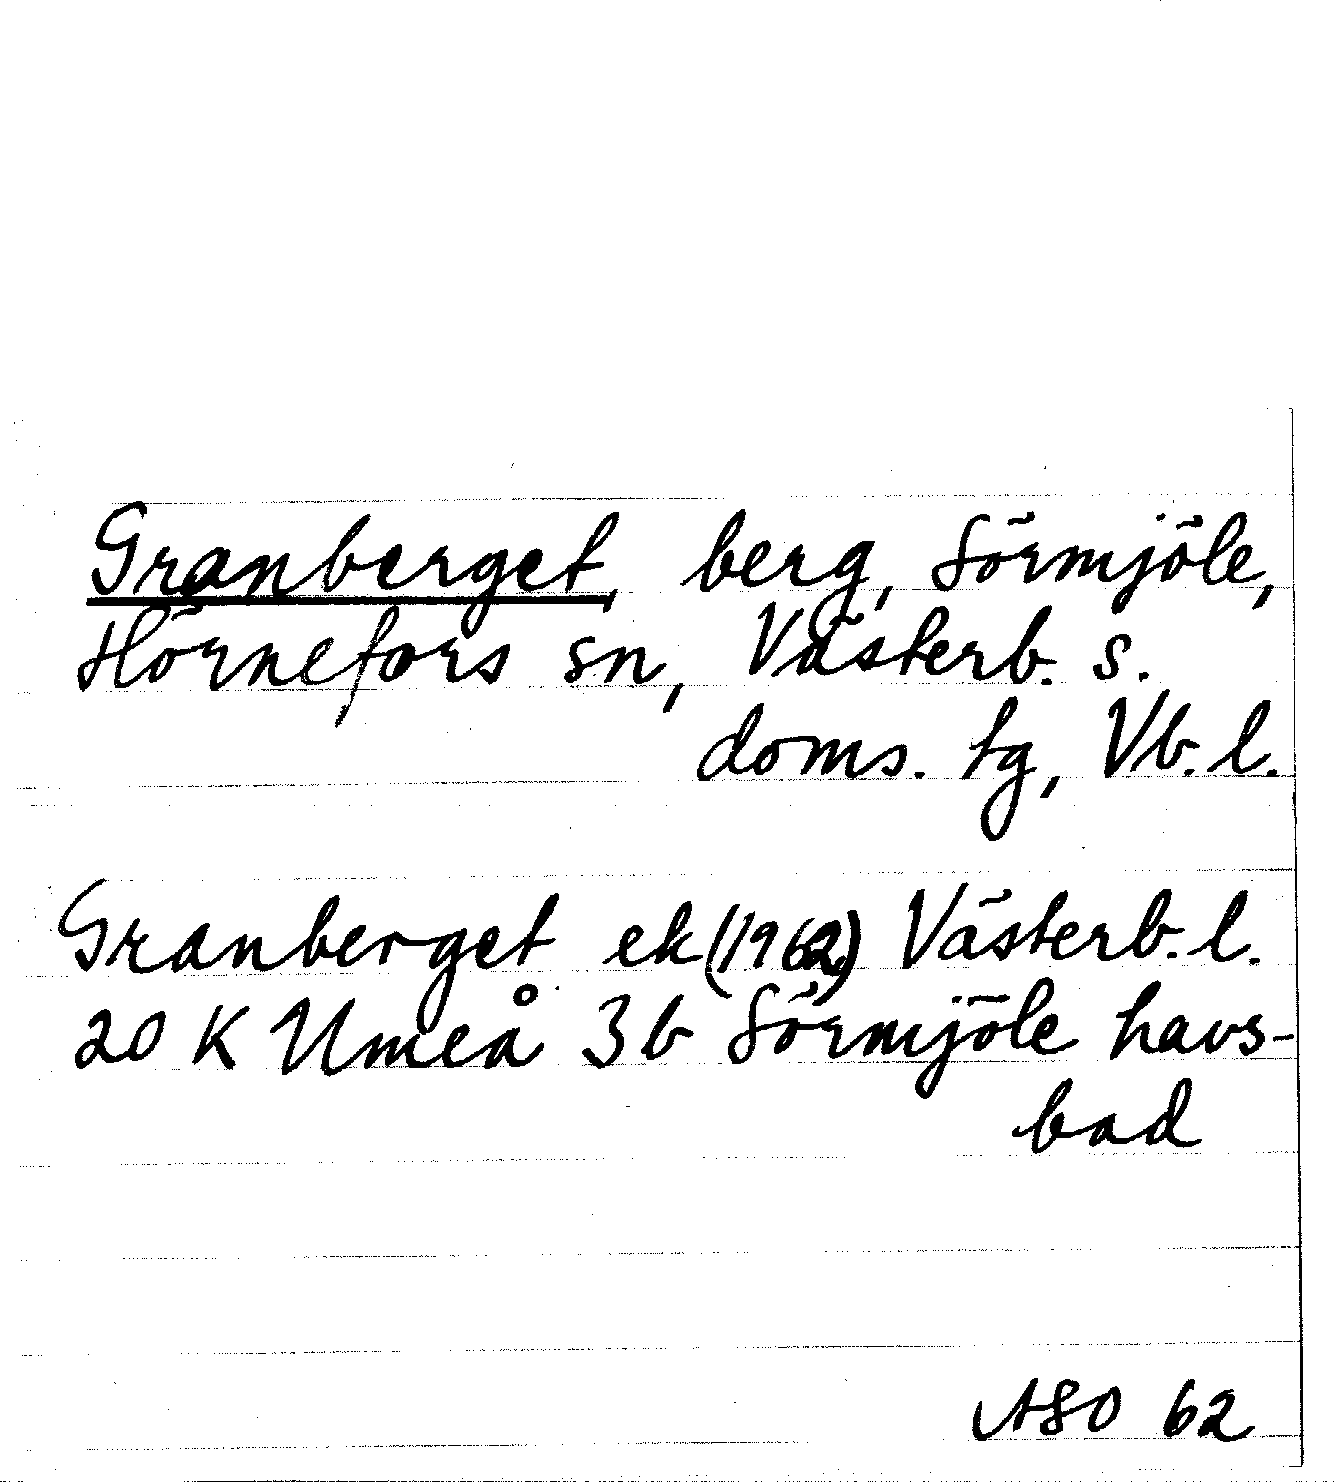 Granberget, berg, Sörmjöle,
Hörnefors sn, Västerb. s.
doms. tg, Vb. l.
Granberget ek (1962) Västerb. l.
20 K Umeå 3b Sörmjöle havs-
bad
ASO 62